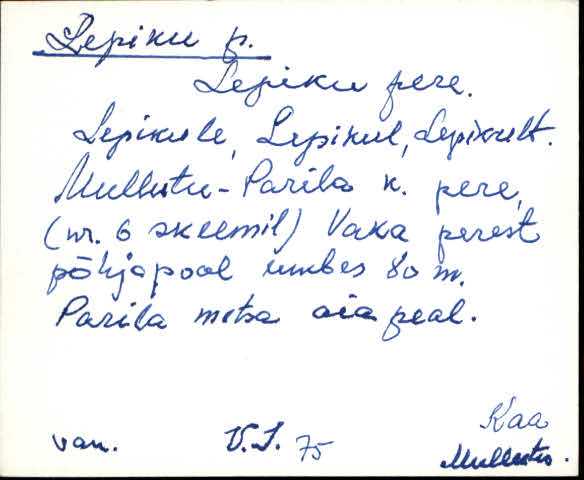 Lepiku p.
Lepiku pere.
Lepikule, Lepikul, Lepikult.
Mullutu-Parila k. pere,
(nr. 6 skeemil) Vaka perest
põhjapool umbes 80 m.
Parila metsa aia peal.
van. V.J. 75 Kaa
Mullutu.